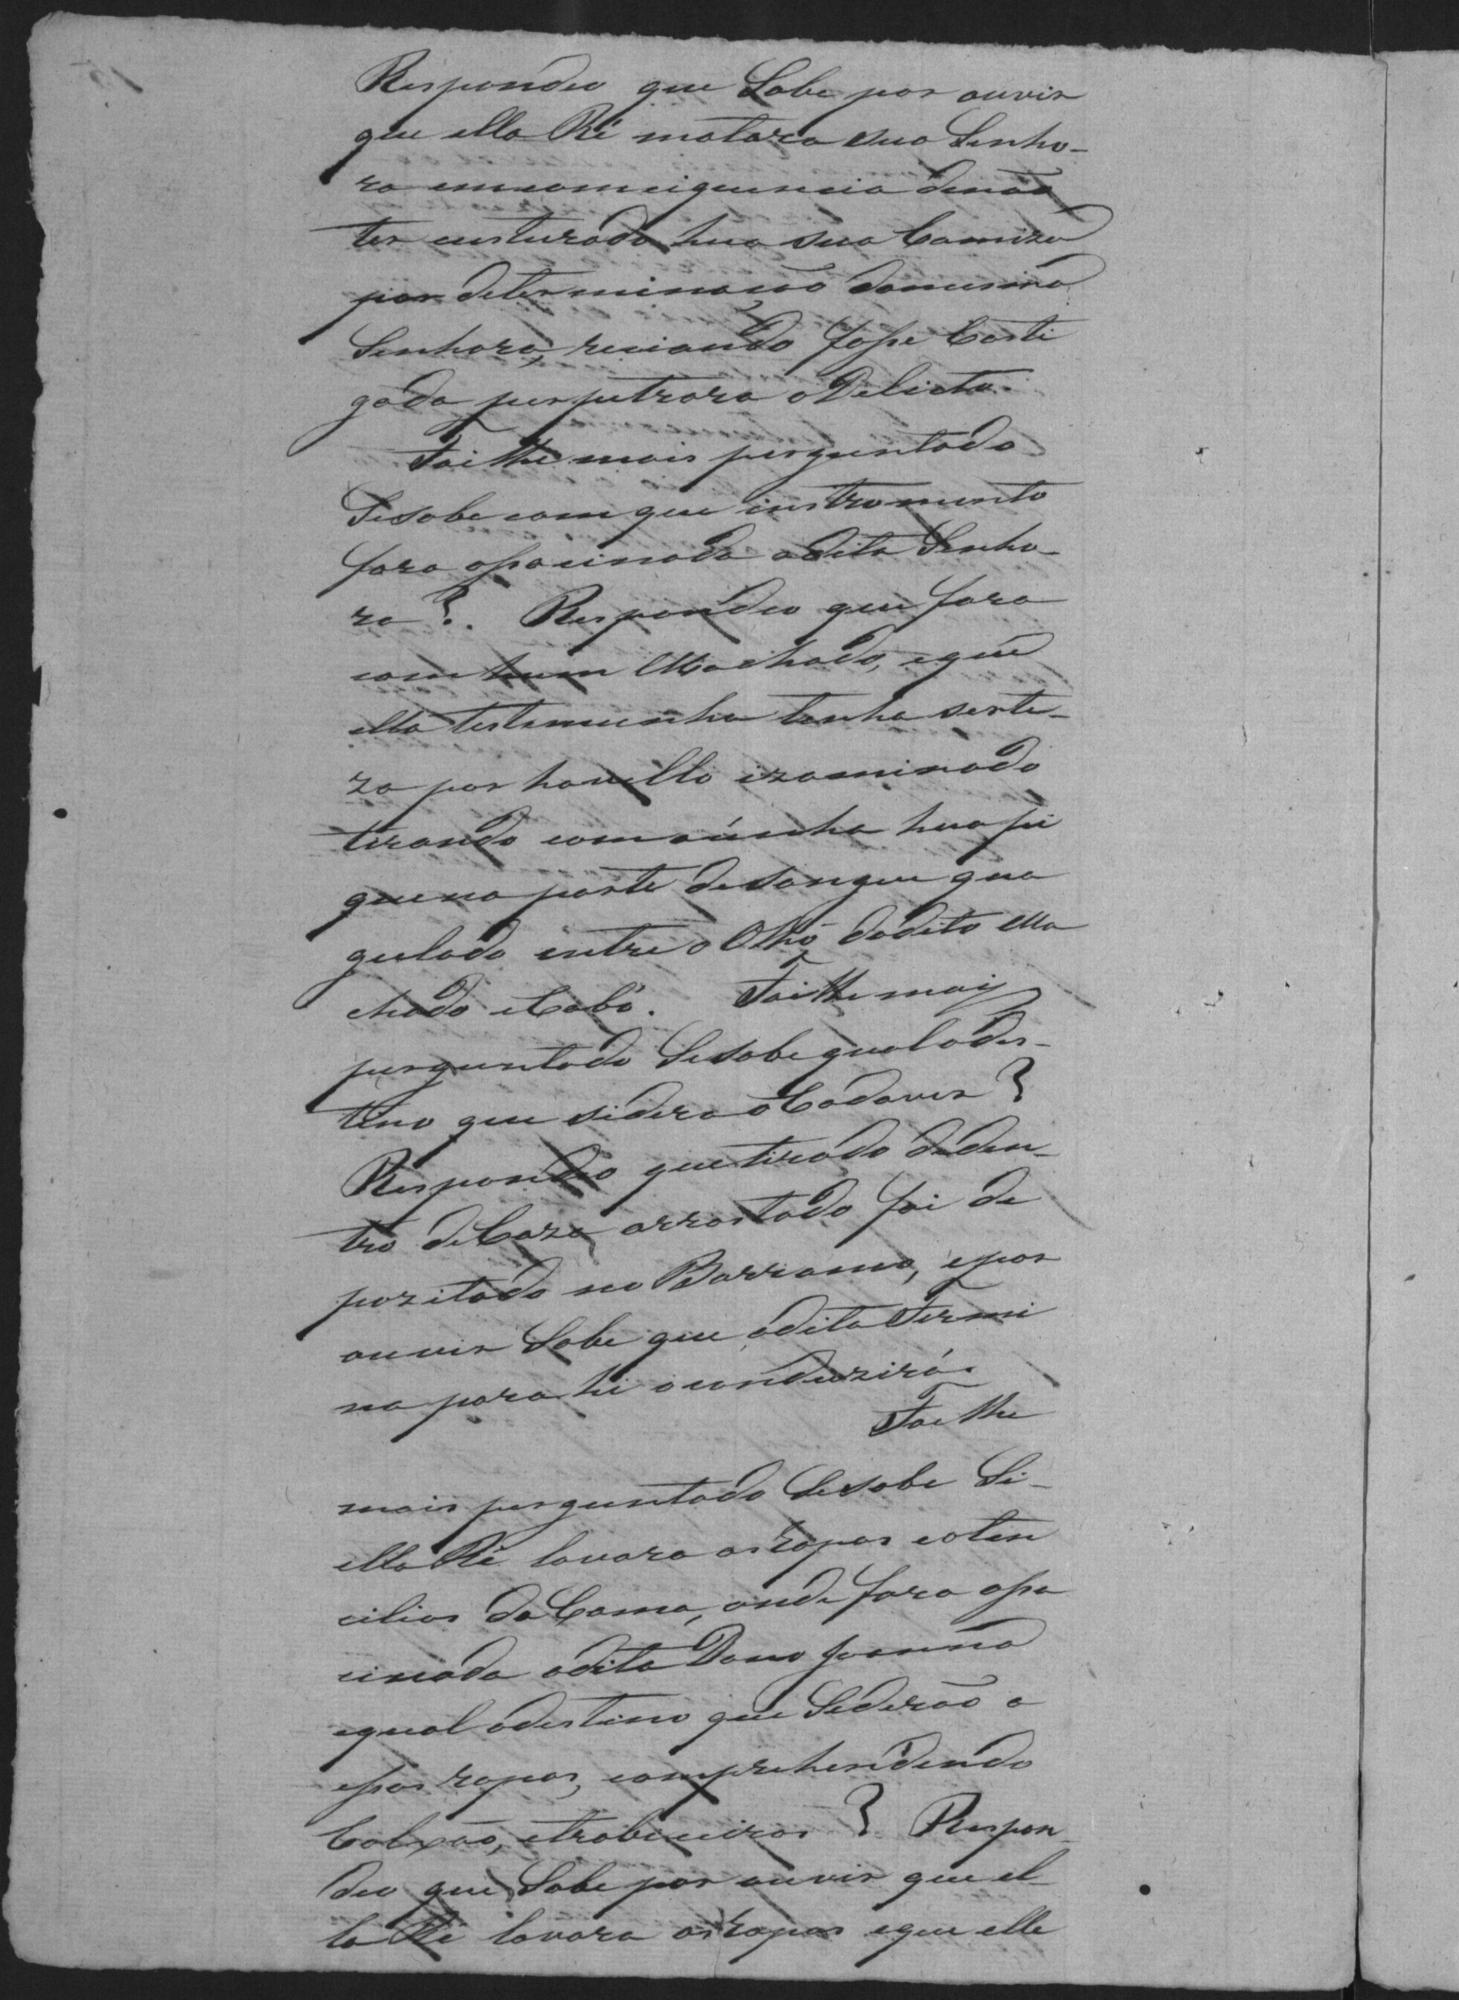 Respondeo que Sabe por ouvir
que ella Ré matara sua Senho-
ra emcomciquencia denão
ter custurado hua sua Camiza
por determinacão damesma
Senhora, reciando fosse Casti
gada perpetrara o Delicto.
Foi lhe mais perguntado
Sesabe comque instromento
fora assacinada adita Senho-
ra? Respondeo que fora
com hum Machado, eque
ella testemunha tenha serte-
za por havello izaminado
tirando com aunha hua pi
quena parte desangue qua
gulado entre o Olho dodito Ma
chado e Cabo. Foi lhe mais
perguntado Sesabe qual odes-
tino que sidera o Cadaver?
Respondeo quetirado deden-
tro de Caza arrastado foi de
pozitado no Barranco, epor
ouvir Sabe que adita Firmi
na para hi oconduzirá.
Foi lhe
mais perguntado Sesabe Si-
ella Ré lavara asropas eoten
cilios da Cama, onde fora assa
cinada adita Dona Joanna
equal odestino que Sederão a
essas ropas, comprehendendo
Colxão, etrabiceiros? Respon-
deo que Sabe por ouvir que el-
la Ré lavara asropas eque elle